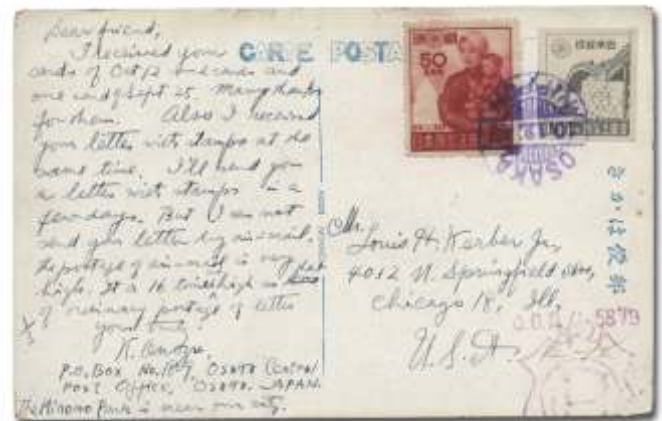 Dear friend,
I received your
cards of Oct 12 and
one card of Sept 25. Many thanks
for them. Also I received
your letter with stamps at the
same time. I'll send you
a letter with stamps in a
few days. But I can not
send you letter by air-mail.
the postage of air-mail is very
high. It is 16 times high as
of ordinary postage of letter
yours truly,
K.
P.O. Box No. 187, Osaka Central
Post Office, Osaka, Japan.
The Minomo Park is near our city.
CARTE POSTA
50
OSAKA
Mr. Louis H. Kerber Jr,
4012 N. Springfield Ave,
Chicago 18, Ill.
U.S.A.
5879